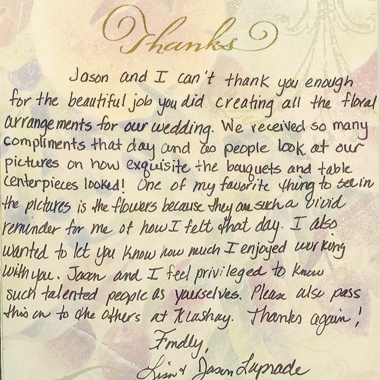 Thanks
Jason and I can't thank you enough
for the beautiful job you did creating all the floral
arrangements for our wedding. We received so many
compliments that day and as people look at our
pictures on how exquisite the bouquets and table
centerpieces looked! One of my favorite thing to see in
the pictures is the flowers because they are such a vivid
reminder for me of how I felt that day. I also
wanted to let you know how much I enjoyed working
with you. Jason and I feel privileged to know
such talented people as yourselves. Please also pass
this on to the others at Kashay. Thanks again!
Fondly,
Lisa & Jason